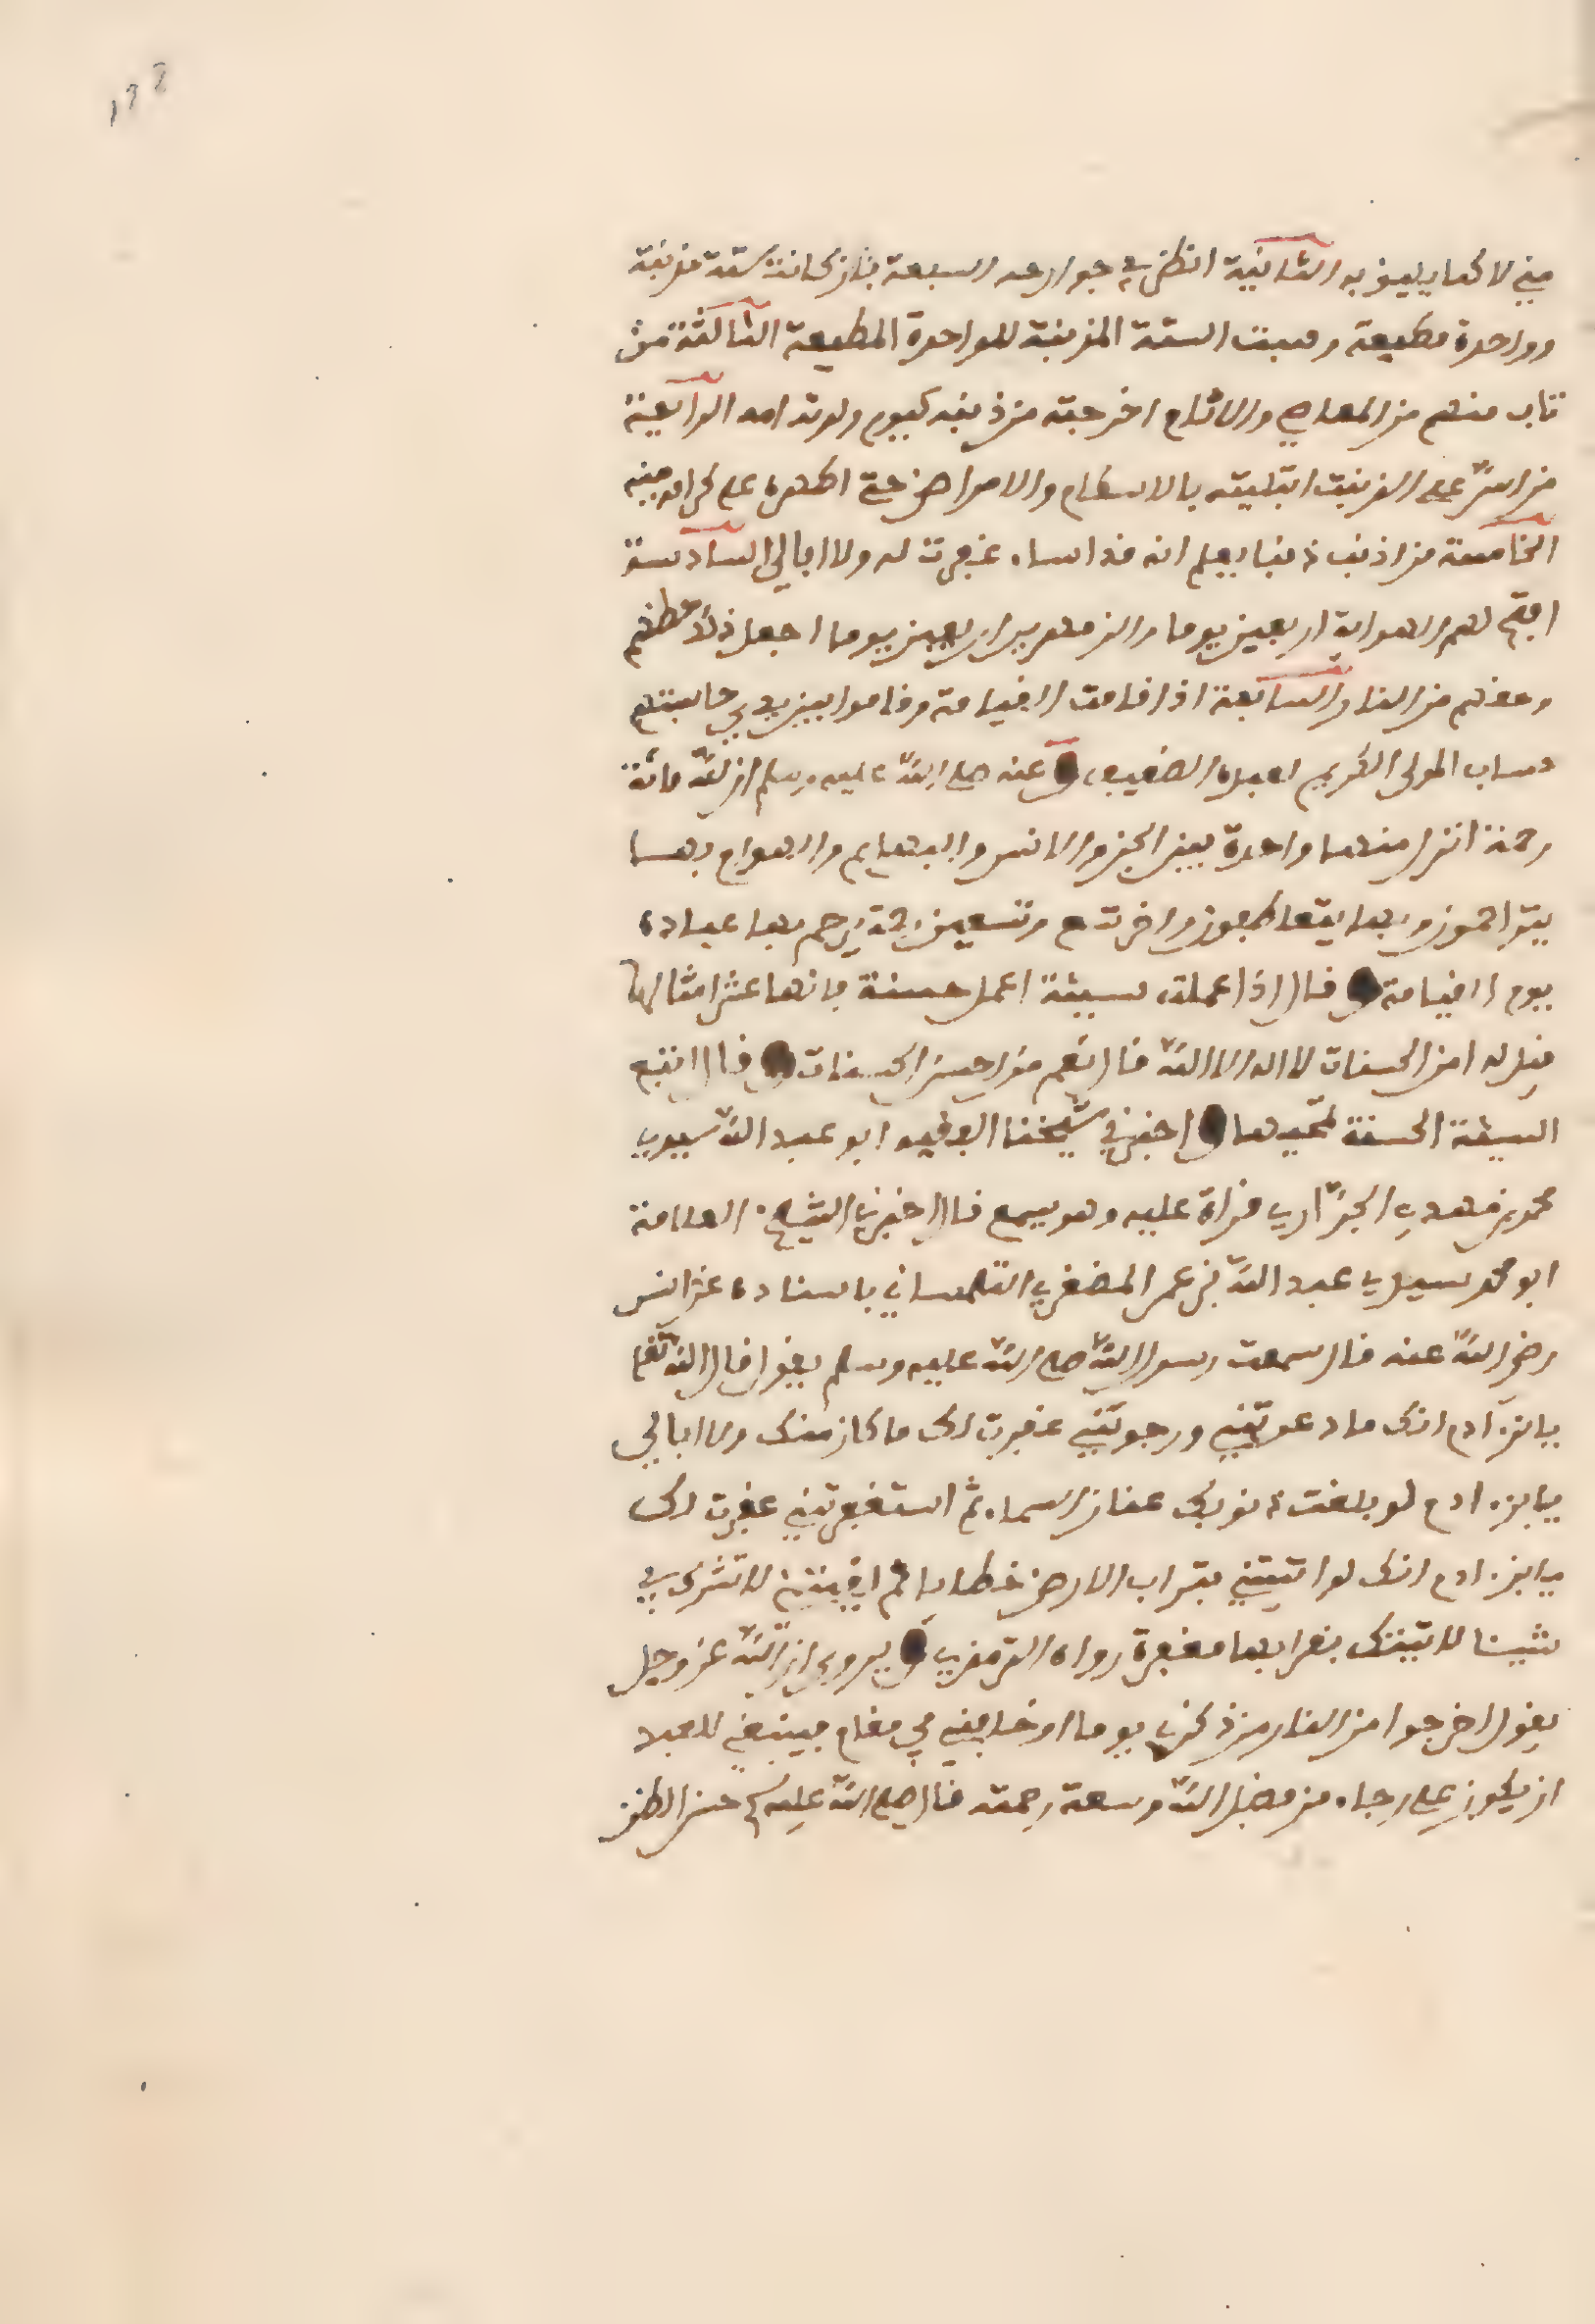 ١٣٨
مني لا كما يليق به الثانية انظر في جوارحه السبعة فان كانت ستة مذنبة
وواحدة مطيعة وهبت الستة المذنبة للواحدة المطيعة الثالثة من
تاب منهم من المعاصي والاثام اخرجته من ذنبه كيوم ولدته امه الرابعة
من اصر على الذنب ابتليته بالاسقام والامراض حتى اطهره على
الخامسة من اذنب ذنبا يعلم انه قد اساء غفرت له ولا ابالي السادسة
لهم اربعين يوما والزمهرير اربعين يوما اجعل ذلك حظهم
من النار السابعة اذا قامت القيامة وقاموا بين يدي حاسبتهم
حساب المولى الكريم لعبده الضعيف وعنه صلى الله عليه وسلم ان لله مائة
رحمة انزل منها واحدة بين الجن والانس والبهايم والهوام بها
يتراحمون وبها يتعاطفون واخر تسع وتسعين رحمة يرحم بها عباده
يوم القيامة وقال اذا عملت سيئة اعمل حسنة فانها عشر امثالها
قيل له امن الحسنات لا اله الا الله قال نعم من احسن الحسنات وقال اتبع
السيئة الحسنة تمحيها واخبرني شيخنا الفقيه ابو عبد الله سيدي
محمد بن مهدي الجراري قراة عليه وهو يسمع قال اخبرني الشيخ العلامة
ابو محمد سيدي عبد الله بن عمر المضغري التلمساني باسناده عن انس
رضي الله عنه قال سمعت رسول الله صلى الله عليه وسلم يقول قال الله تعالى
يا بن ءادم انك ما دعوتني ورجوتني غفرت لك ما كان منك ولا ابالي
يا بن ءادم لو بلغت ذنوبك عنان السماء ثم استغفرتني غفرت لك
يا بن ءادم انك لو اتيتني بتراب الارض خطايا ثم لقيتني لا تشرك بي
شيئا لاتيتك بقرابها مغفرة رواه الترمذي ويروى ان الله عز وجل
يقول اخرجوا من النار من ذكرني يوما او خافني في مقام فينبغي للعبد
ان يكون على رجاء من فضل الله وسعة رحمته قال صلى الله عليه وسلم حسن الظن